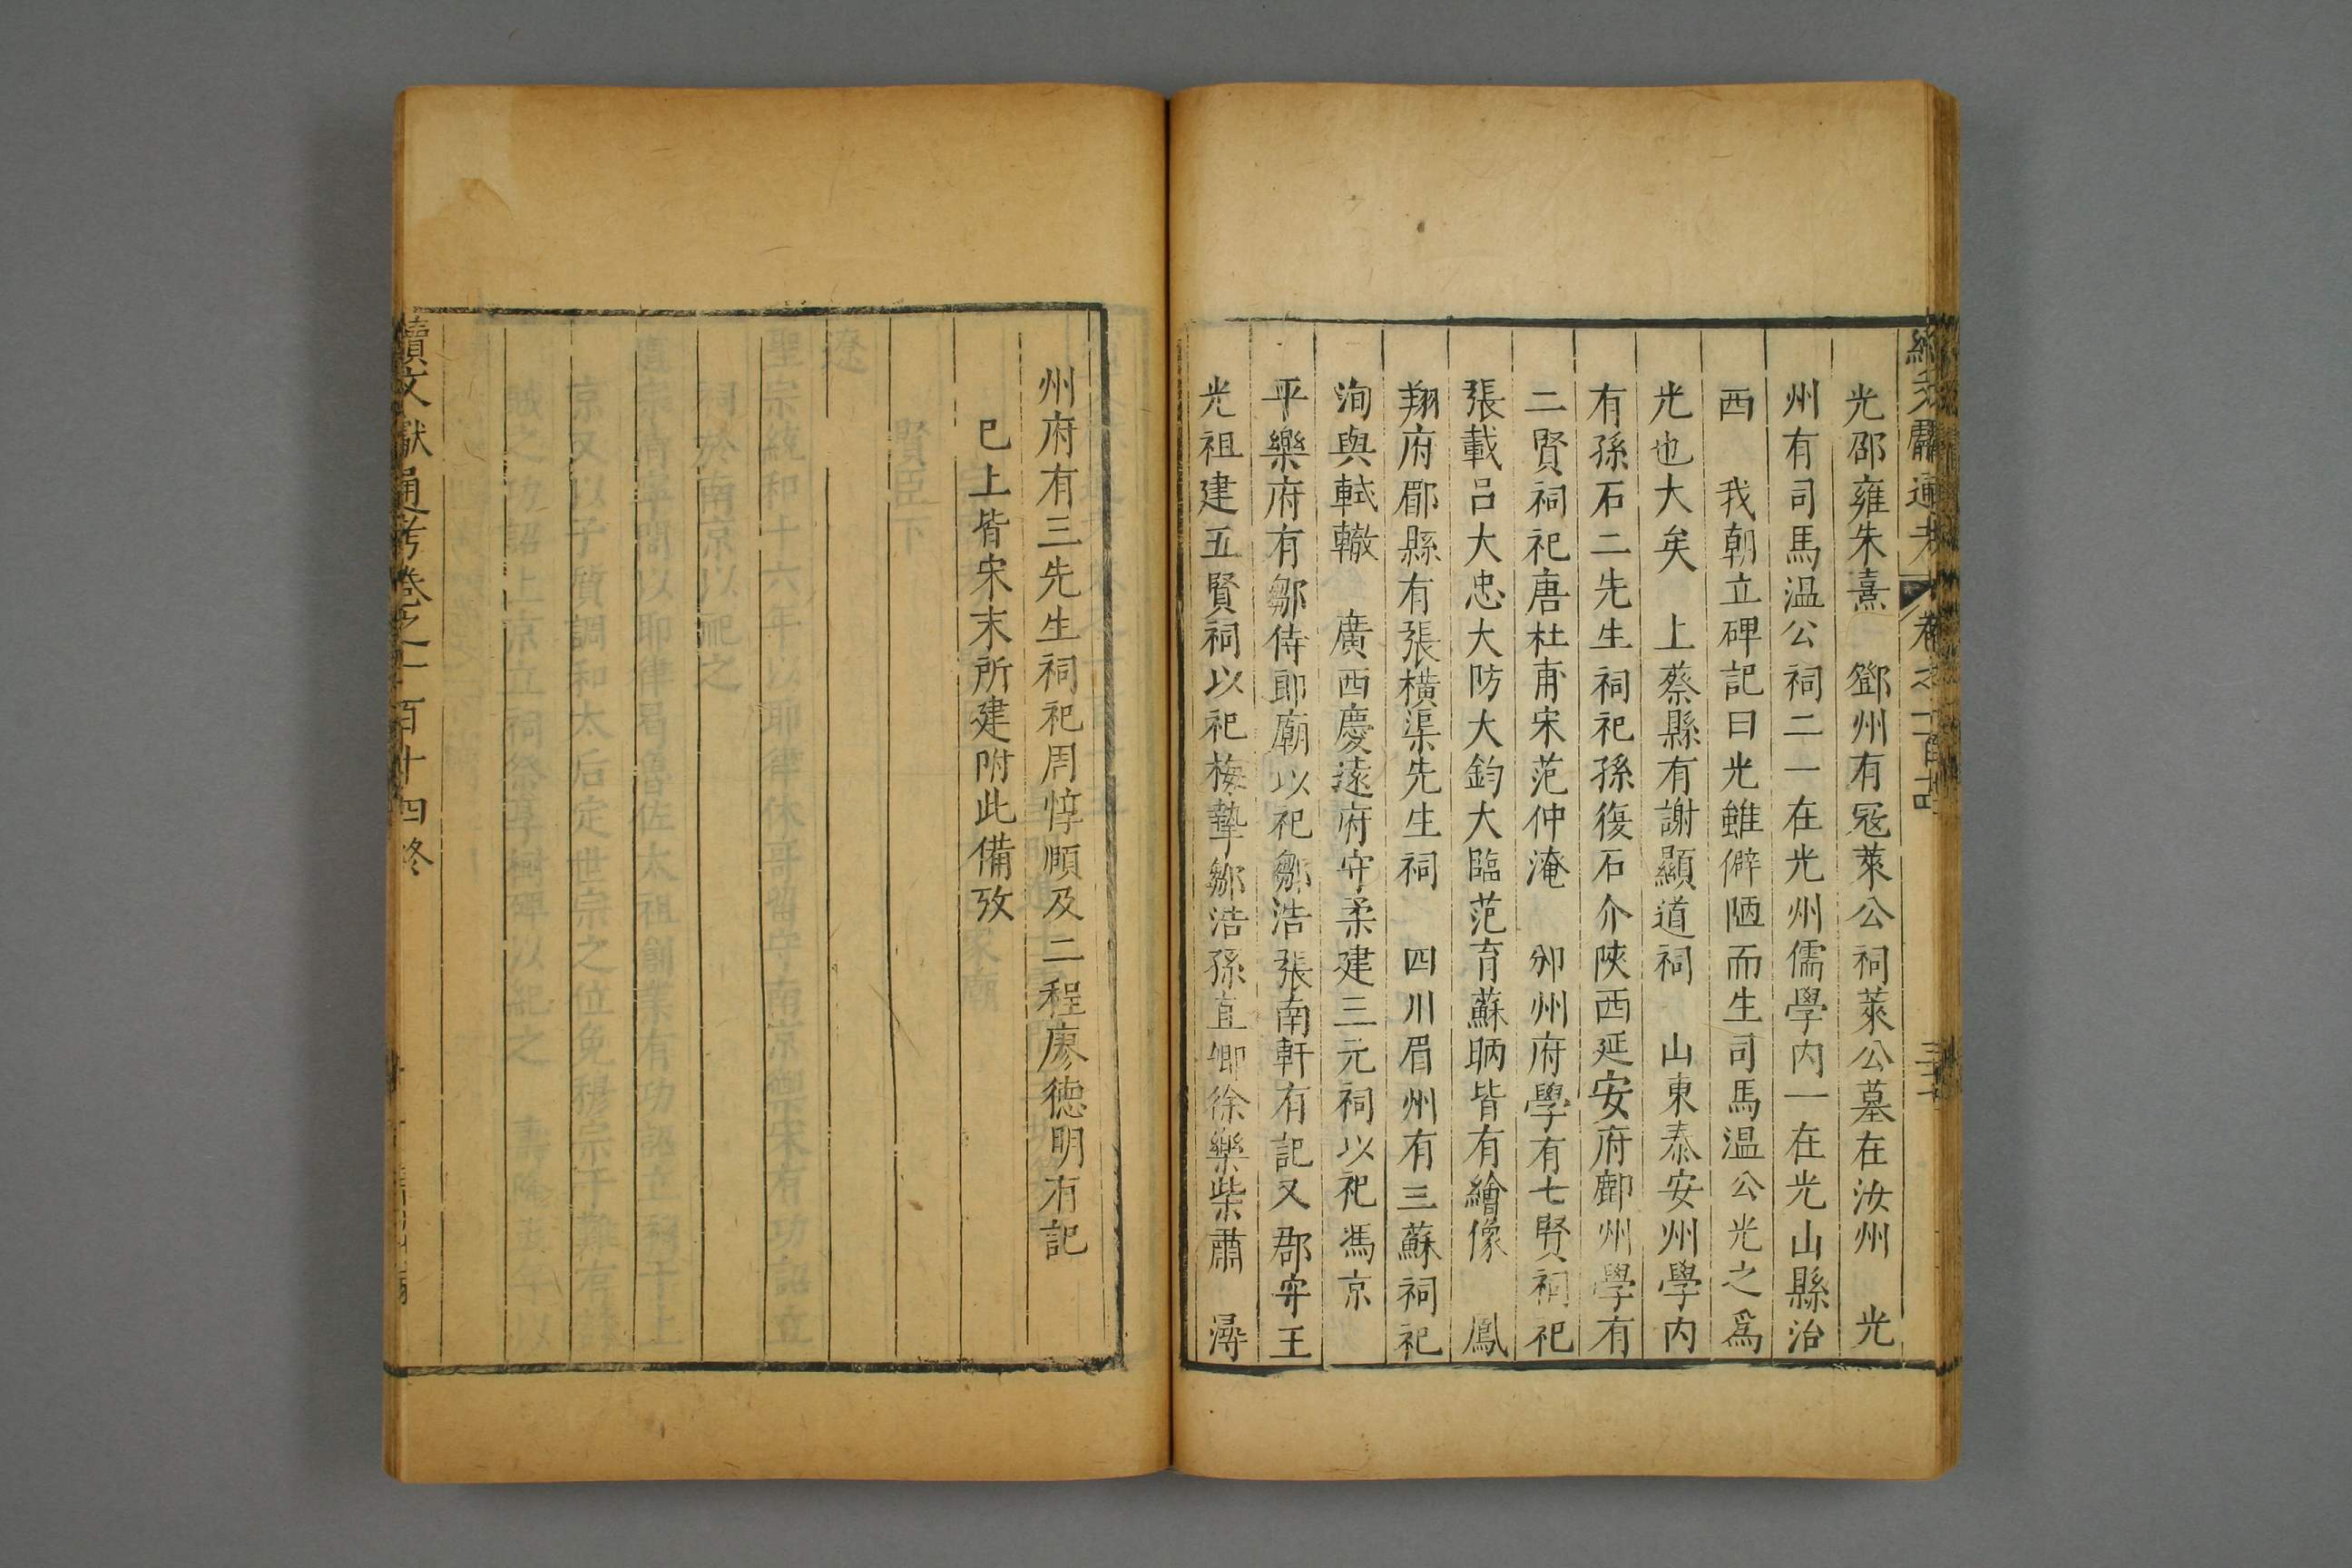 光邵雍朱熹　鄧州有寇萊公祠萊公墓在汝州　光
州有司馬温公祠二一在光州儒學内一在光山縣治
西　我朝立碑記曰光雖僻陋而生司馬温公光之爲
光也大矣　上蔡縣有謝顯道祠　山東泰安州學内
有孫石二先生祠祀孫復石介陝西延安府鄜州學有
二賢祠祀唐杜甫宋范仲淹　邠州府學有七賢祠祀
張載吕大忠大防大鈞大臨范育蘇昞皆有繪像　鳳
翔府郿縣有張横渠先生祠　四川眉州有三蘇祠祀
洵與軾轍　廣西慶遠府守柔建三元祠以祀馮京
平樂府有鄒侍郎廟以祀鄒浩張南軒有記又郡守王
光祖建五賢祠以祀梅摯鄒浩孫直卿徐樂柴肅　潯
州府有三先生祠祀周惇順及二程廖德明有記
已上皆宋末所建附此備攷
續文獻通考卷之一百十四終